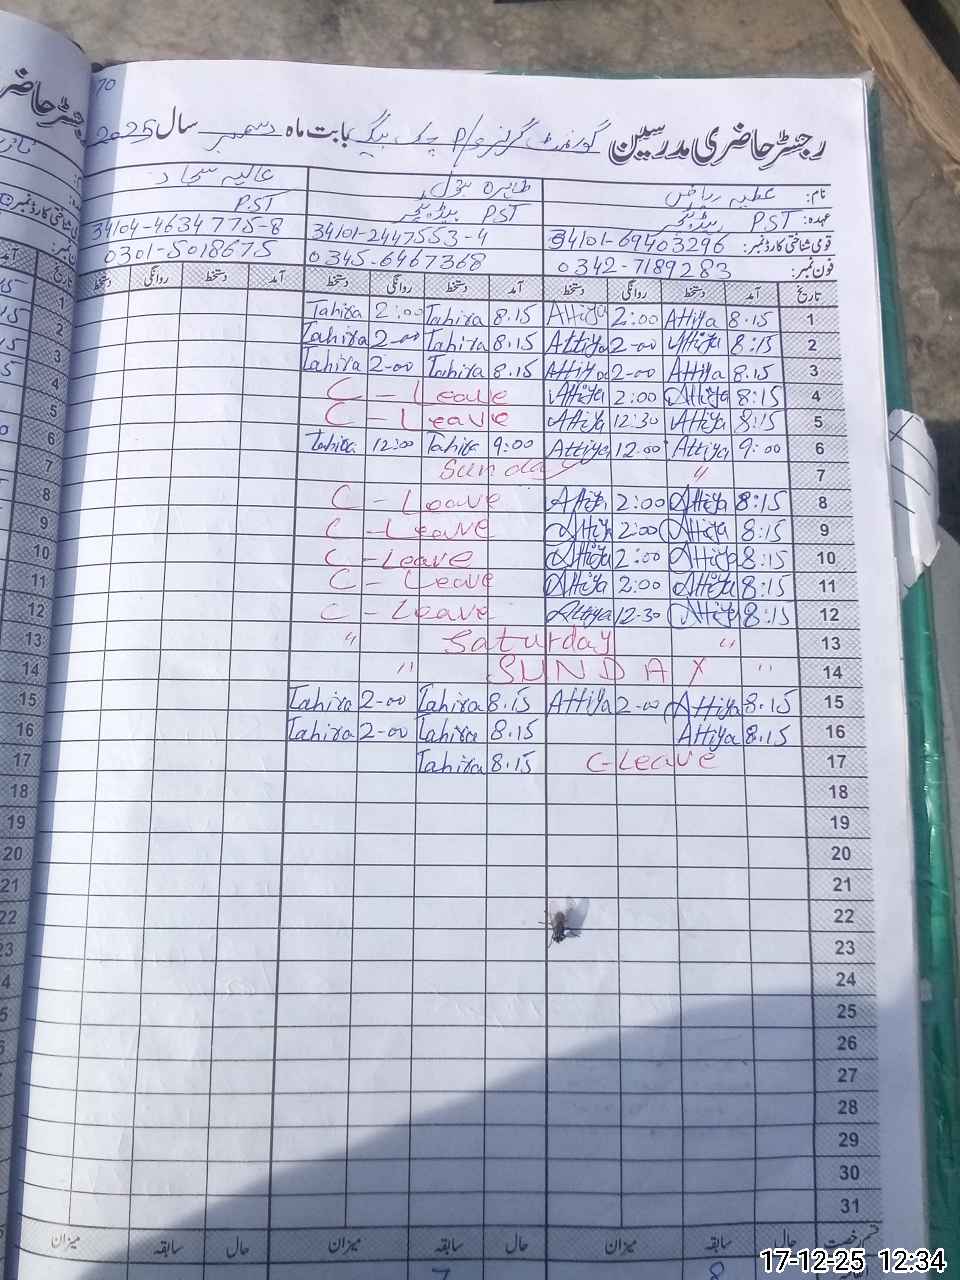 70
رجسٹر حاضری مدرسین گورنمنٹ گرلز P/S چک بیگ بابت ماہ دسمبر سال 2025
نام: عطیہ ریاض طاہرہ بتول عالیہ سجاد
عہدہ: PST ہیڈ ٹیچر PST PST
قومی شناختی کارڈ نمبر: 34101-69403296 34101-2447553-4 34104-4634775-8
فون نمبر: 0342-7189283 0345-6467368 0301-5018675
تاریخ آمد دستخط روانگی دستخط آمد دستخط روانگی دستخط آمد دستخط روانگی دستخط
1 8.15 Attiya 2:00 Attiya 8.15 Tahira 2:00 Tahira
2 8:15 Attiya 2-00 Attiya 8.15 Tahira 2-00 Tahira
3 8.15 Attiya 2-00 Attiya 8.15 Tahira 2-00 Tahira
4 8:15 Attiya 2:00 Attiya C - Leave
5 8:15 Attiya 12:30 Attiya C - Leave
6 9:00 Attiya 12.00 Attiya 9:00 Tahira 12:00 Tahira
7 " Sunday
8 8:15 Attiya 2:00 Attiya C - Leave
9 8:15 Attiya 2:00 Attiya C - Leave
10 8:15 Attiya 2:00 Attiya C - Leave
11 8:15 Attiya 2:00 Attiya C - Leave
12 8:15 Attiya 12-30 Attiya C - Leave
13 " Saturday "
14 " SUNDAY "
15 8.15 Attiya 2-00 Attiya 8.15 Tahira 2-00 Tahira
16 8.15 Attiya 8.15 Tahira 2-00 Tahira
17 C-Leave 8.15 Tahira
18
19
20
21
22
23
24
25
26
27
28
29
30
31
قسم رخصت حال سابقہ میزان حال سابقہ میزان حال سابقہ میزان
17-12-25 12:34